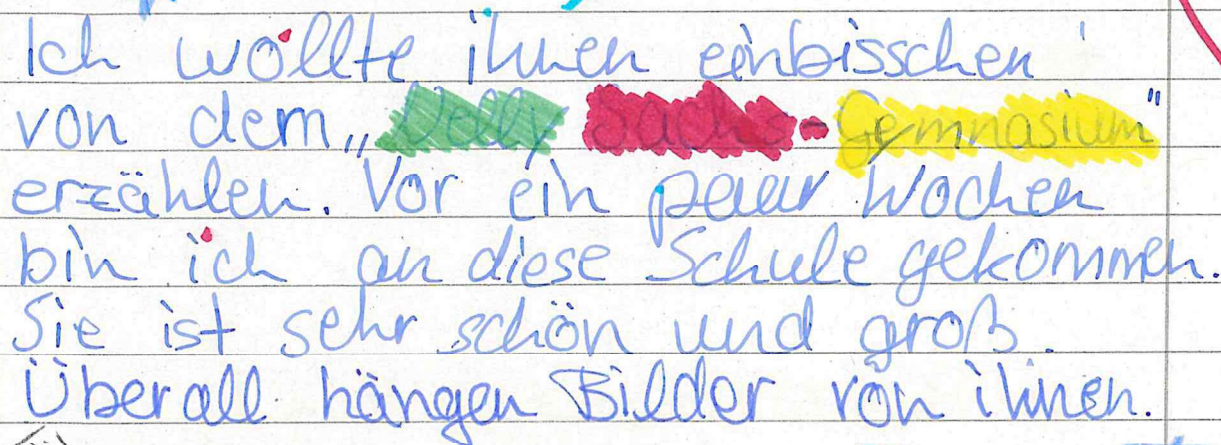 Ich wollte ihnen einbisschen
von dem „Nelly Sachs-Gymnasium"
erzählen. Vor ein paar Wochen
bin ich an diese Schule gekommen.
Sie ist sehr schön und groß.
Überall hängen Bilder von ihnen.